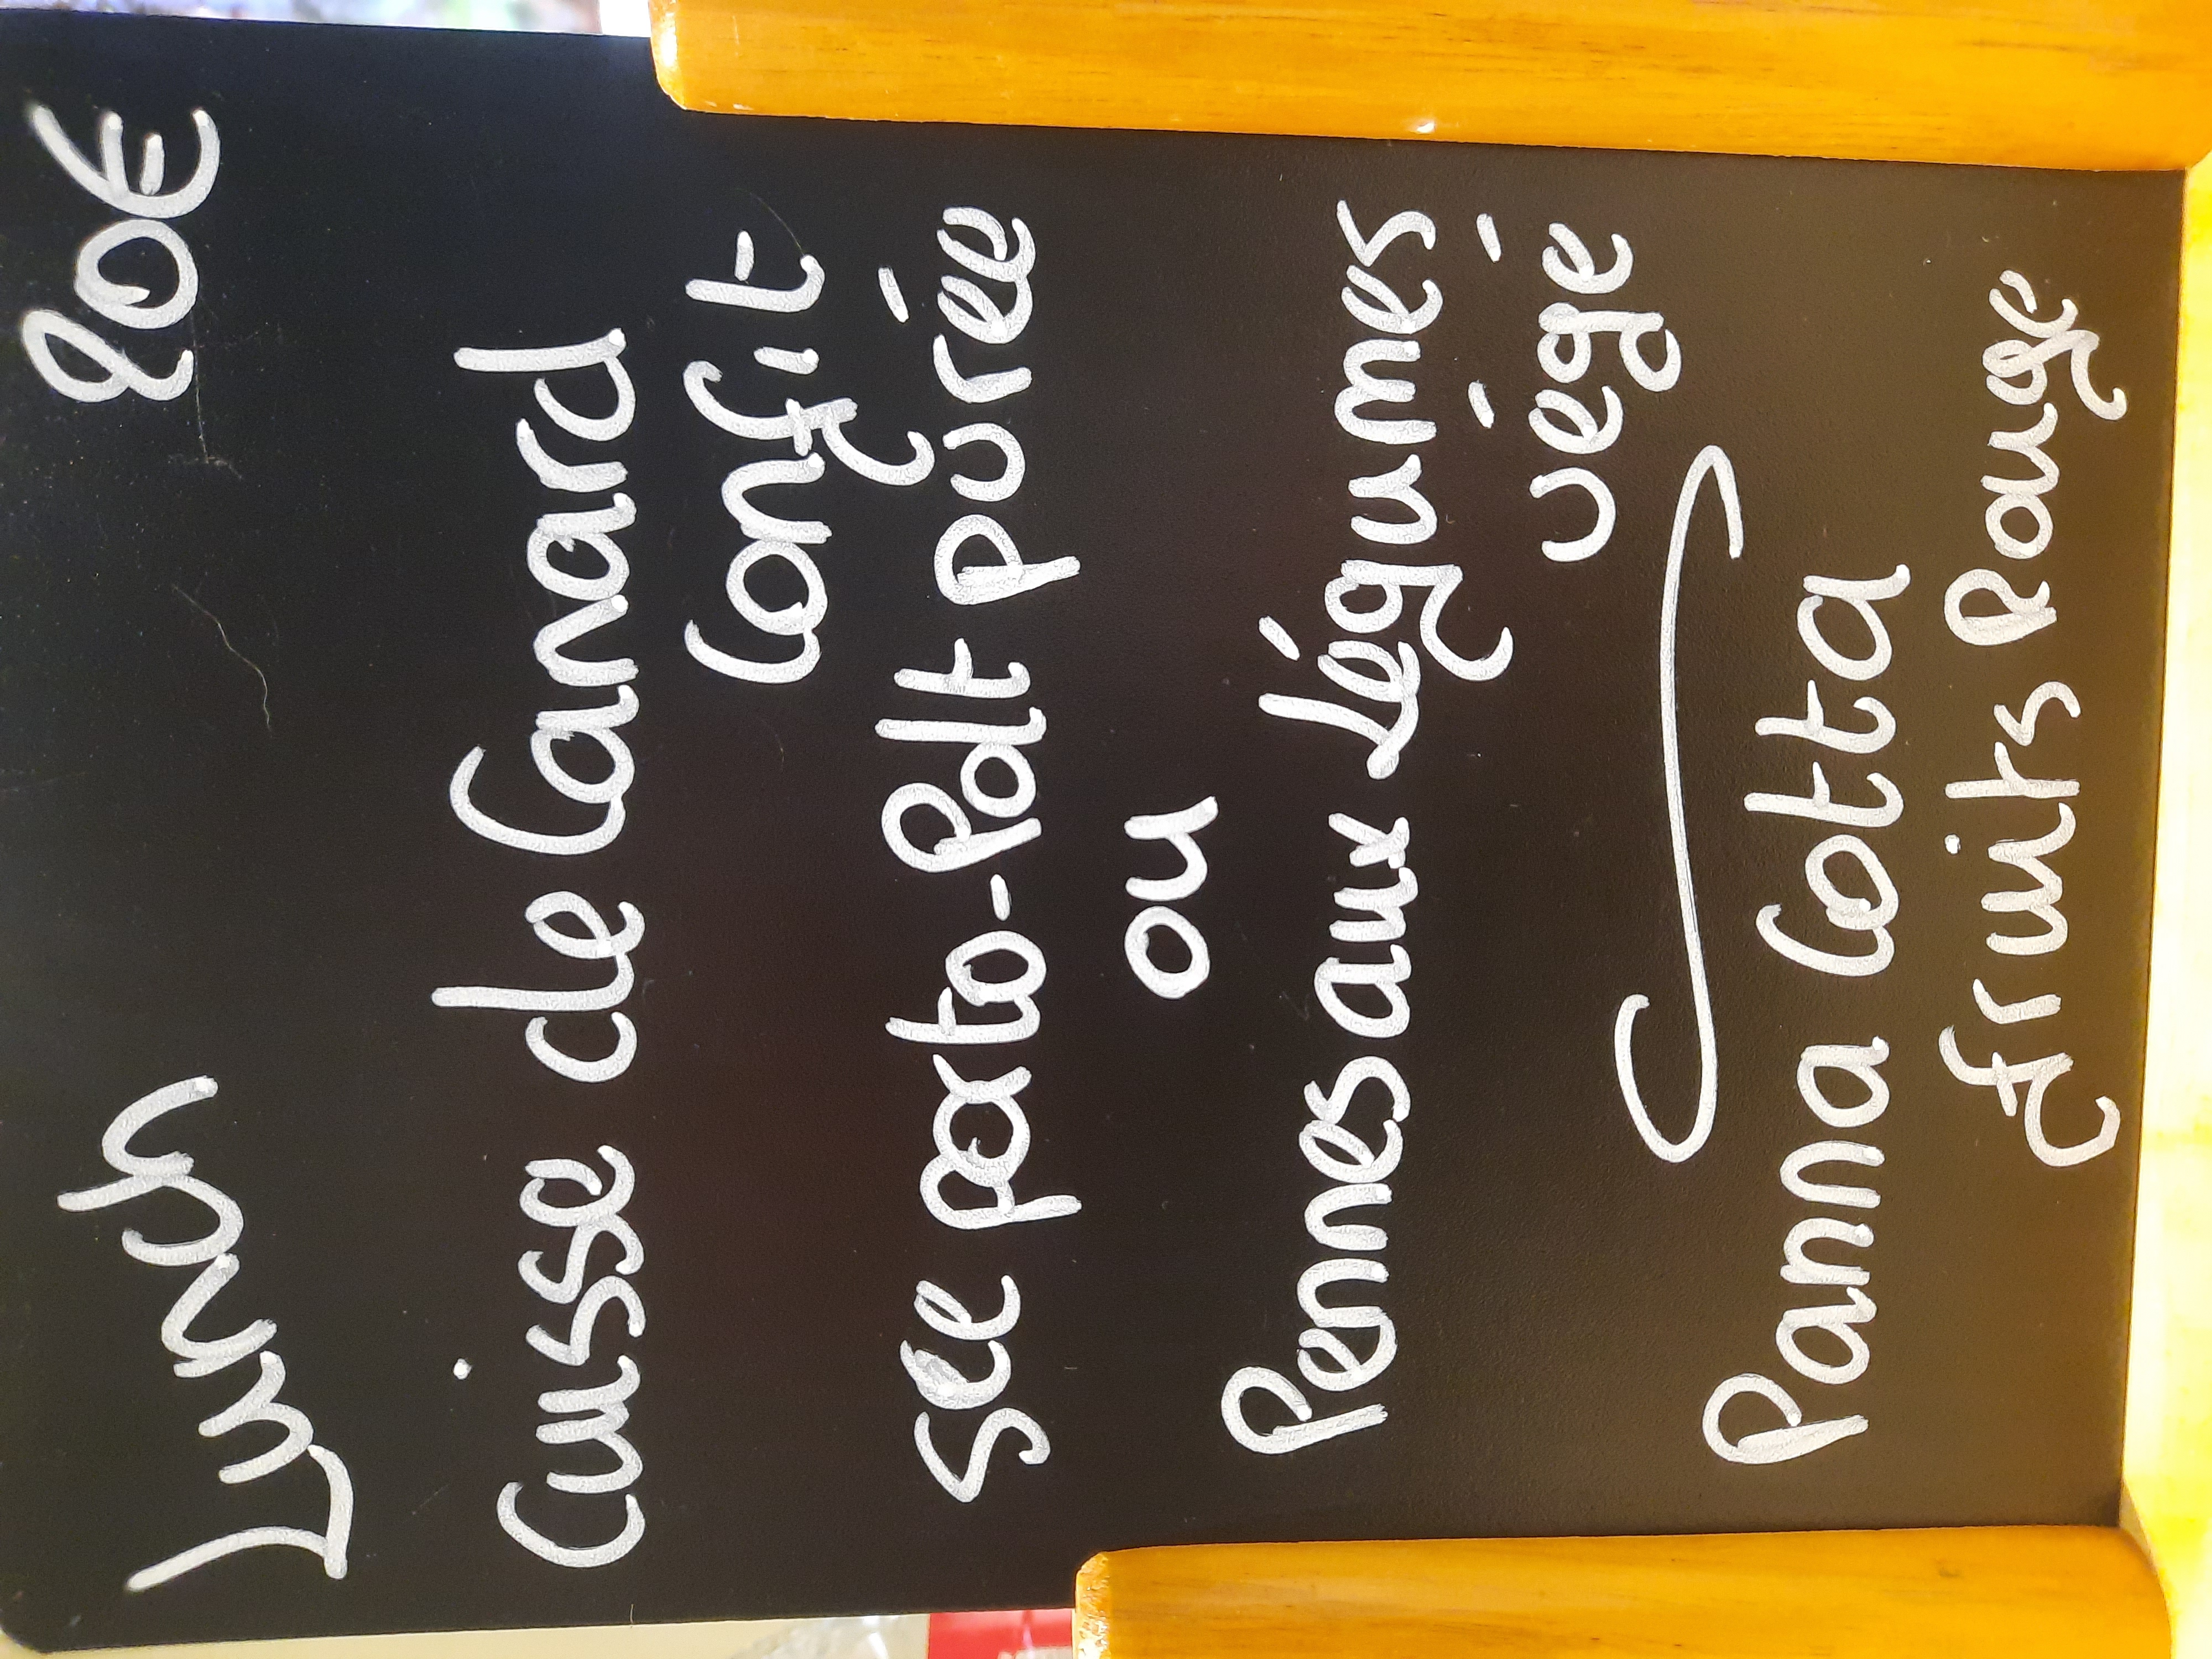 Lunch 20€
Cuisse de Canard
Confit
See porto-Polt purée
ou
Pennes aux légumes
végé
Panna Cotta
fruits Rouge